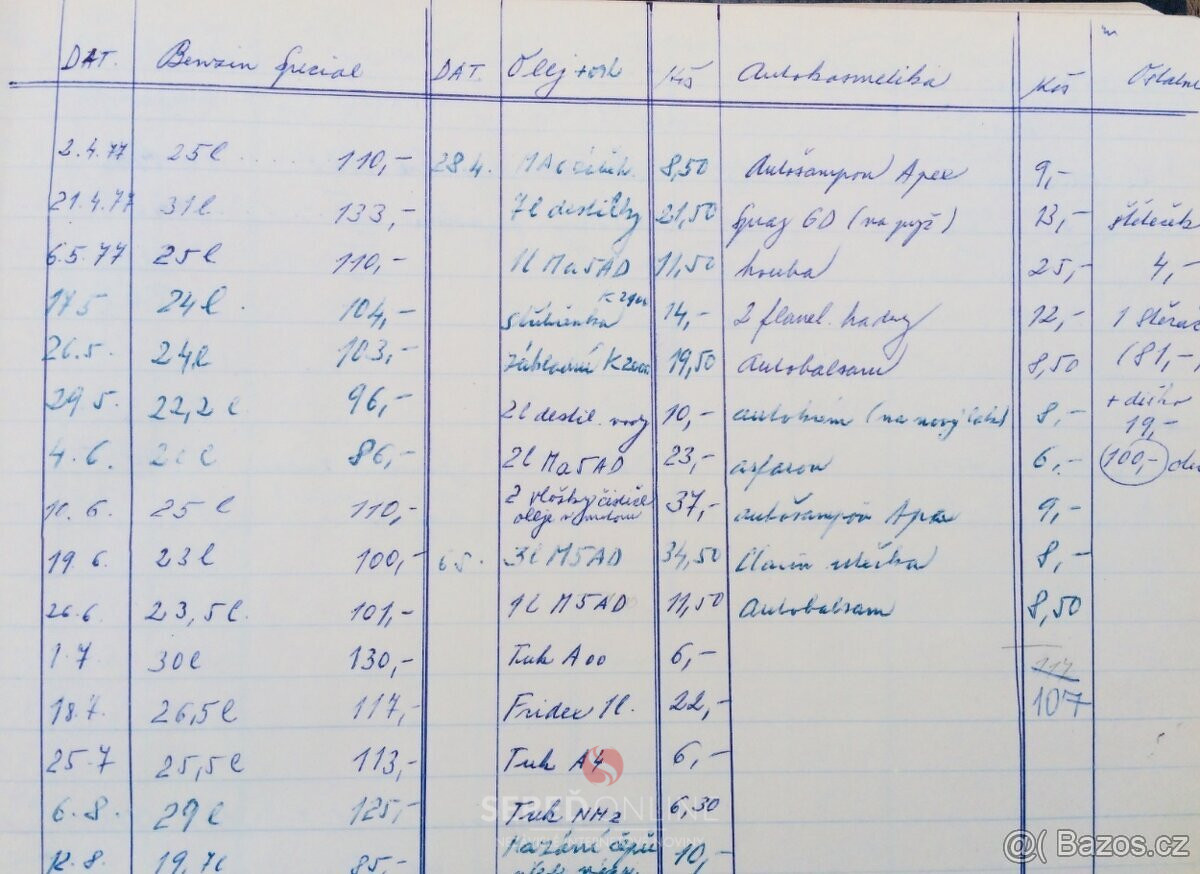 DAT. Benzin Special DAT. Olej Kčs Autokosmetika Kčs Ostatní
2.4.77 25l 110,- 28.4. 8,50 Autošampon Apex 9,-
21.4.77 31l 133,- 7l destilky 21,50 Spray GD (na 13,- štěteček
6.5.77 25l 110,- 1l Ma5AD 11,50 houba 25,- 4,-
17.5 24l 104,- 14,- 2 flanel. hadry 12,- 1 stěrač
26.5. 24l 103,- základní 19,50 Autobalsam 8,50 (81,-
29.5. 22,2l 96,- 2l destil. vody 10,- autokrém (na nový lak) 8,- 19,-
4.6. 86,- 2l Ma5AD 23,- 6,- 100,-
11.6. 25l 110,- 2 vložky čističe 37,- autošampon Apex 9,-
oleje
19.6. 23l 100,- 6.5. 3l M5AD 34,50 utěrka 8,-
26.6. 23,5l. 101,- 1l M5AD 11,50 Autobalsam 8,50
1.7 30l 130,- Tuk A00 6,- 117
18.7. 26,5l 117,- Fridex 1l. 22,- 107
25.7 25,5l 113,- Tuk A4 6,-
SEREĎ ONLINE
6.8. 29l 125,- Tuk NH2 6,30
12.8. 19,7l 85,- Mazání čepů 10,-
@( Bazos.cz